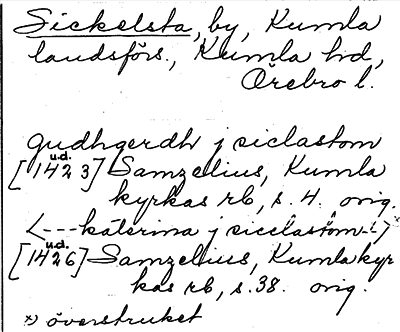 Sickelsta, by, Kumla
landsförs., Kumla hd,
Örebro l.
gudhgerdh j siclastom
u.d.
[1423] Samzelius, Kumla
kyrkas rb, s. 4. orig.
<---katerina j sicclastom-:->x
u.d.
[1426] Samzelius, Kumla kyr
kas rb, s. 38. orig.
x) överstruket